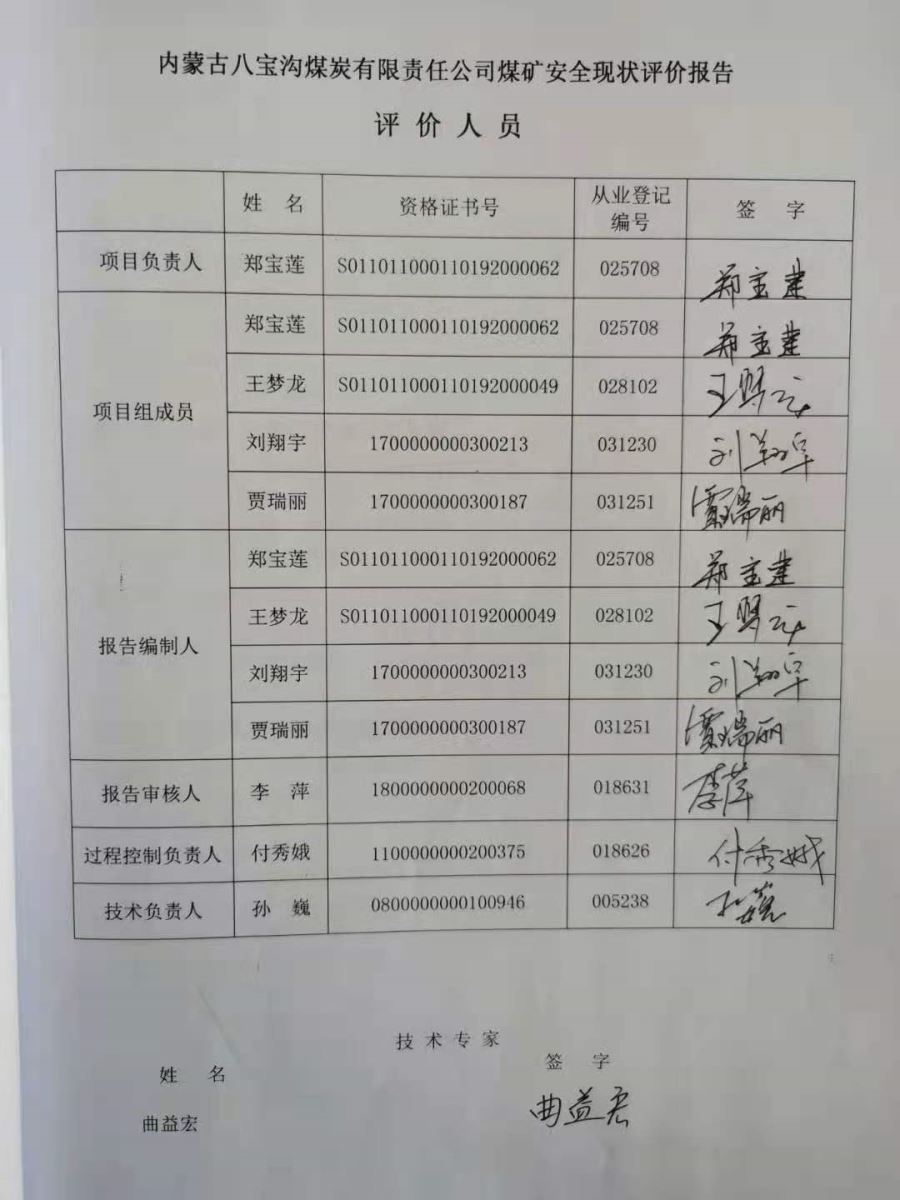 内蒙古八宝沟煤炭有限责任公司煤矿安全现状评价报告
评价人员
姓 名 资格证书号 从业登记编号 签 字
项目负责人 郑宝莲 S011011000110192000062 025708 郑宝莲
项目组成员 郑宝莲 S011011000110192000062 025708 郑宝莲
王梦龙 S011011000110192000049 028102 王梦龙
刘翔宇 1700000000300213 031230 刘翔宇
贾瑞丽 1700000000300187 031251 贾瑞丽
报告编制人 郑宝莲 S011011000110192000062 025708 郑宝莲
王梦龙 S011011000110192000049 028102 王梦龙
刘翔宇 1700000000300213 031230 刘翔宇
贾瑞丽 1700000000300187 031251 贾瑞丽
报告审核人 李 萍 1800000000200068 018631 李萍
过程控制负责人 付秀娥 1100000000200375 018626 付秀娥
技术负责人 孙 巍 0800000000100946 005238 孙巍
技术专家
姓 名 签 字
曲益宏 曲益宏